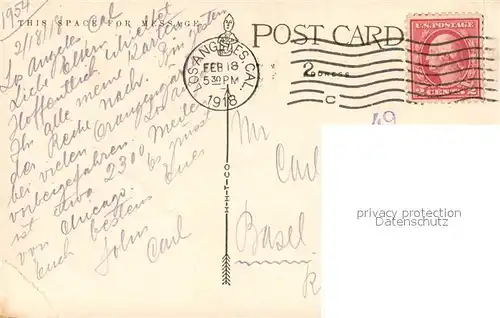 1954
THIS SPACE FOR MESSAGE
2/18/18
Los Angeles Cal
Liebe Eltern
Hoffentlich schicket
Ihr alle meine Karten
der Reihe nach. Bin gestern
bei vielen Orangengärten
vorbeigefahren. Los Angeles
ist etwa 2300 Meilen
von Chicago. Es grüsst
euch bestens Euer
Sohn Carl
POST CARD
ADDRESS
LOS ANGELES, CAL.
FEB 18
5 30 PM
1918
2
C
U.S. POSTAGE
2 CENTS 2
49
O-C-T-H-H
Mr
Carl
Basel
privacy protection
www.oldthing.de